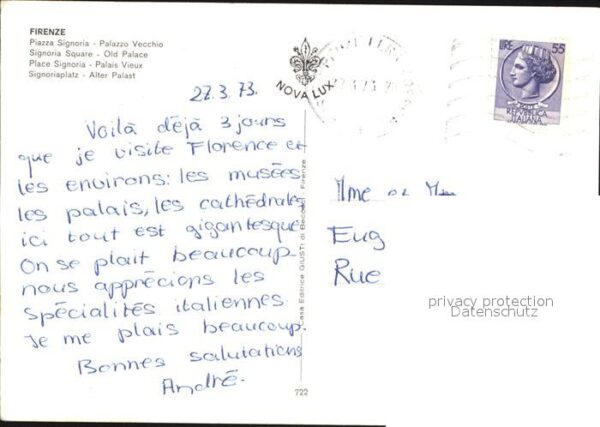 FIRENZE
Piazza Signoria - Palazzo Vecchio
Signoria Square - Old Palace
Place Signoria - Palais Vieux
Signoriaplatz - Alter Palast
NOVA LUX
LIRE 55
REPVBBLICA
ITALIANA
27.3.73.
Voilà déjà 3 jours
que je visite Florence et
les environs: les musées
les palais, les cathédrales
ici tout est gigantesque
On se plait beaucoup.
nous apprécions les
spécialités italiennes
Je me plais beaucoup.
Bonnes salutations
André.
Casa Editrice GIUSTI di Firenze
722
Mme
Eug
Rue
privacy protection
Datenschutz